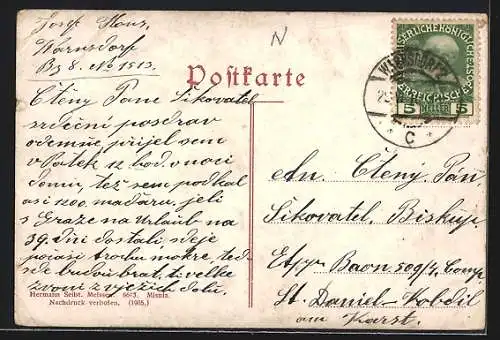 Josef Hanz,
Warnsdorf
Bz 8. No 1513.
N
Postkarte
Čtěný Pane Šikovatel
srdečni pozdrav
odemne, přijel sem
v Pátek 12 hod. v noci
domu, tež sem podkal
asi 1200 maďaru, jeli
s Graze na Urlaub na
39. dni dostali,
počasi trochu mokre, ted
sde budou brat, te velke
zvoni z věžich dolu.
Hermann Seibt, Meissen. Misnia.
Nachdruck verboten. (1905.)
KAISERLICHE KÖNIGLICHE
ÖSTERREICHISCHE POST
5 HELLER 5
WARNSDORF 2
C
An Čtěný Pan,
Šikovatel, Biskup
Etapp Baon 509/4 Comp.
St. Daniel-Kobdil
am Karst.